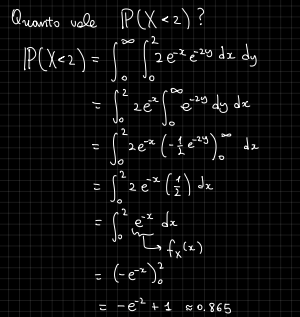 Quanto vale ℙ(X<2)?
ℙ(X<2) = ∫₀^∞ ∫₀² 2e^{-x} e^{-2y} dx dy
= ∫₀² 2e^{-x} ∫₀^∞ e^{-2y} dy dx
= ∫₀² 2e^{-x} (-1/2 e^{-2y})₀^∞ dx
= ∫₀² 2e^{-x} (1/2) dx
= ∫₀² e^{-x} dx
↳ f_X(x)
= (-e^{-x})₀²
= -e^{-2} + 1 ≈ 0.865